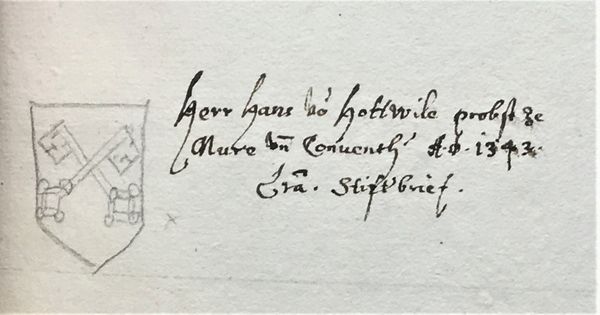 Herr Hans võ Hottwile probst ze
Mure vñ Conventhˢ Aõ. 1343.
Stiftbrief.